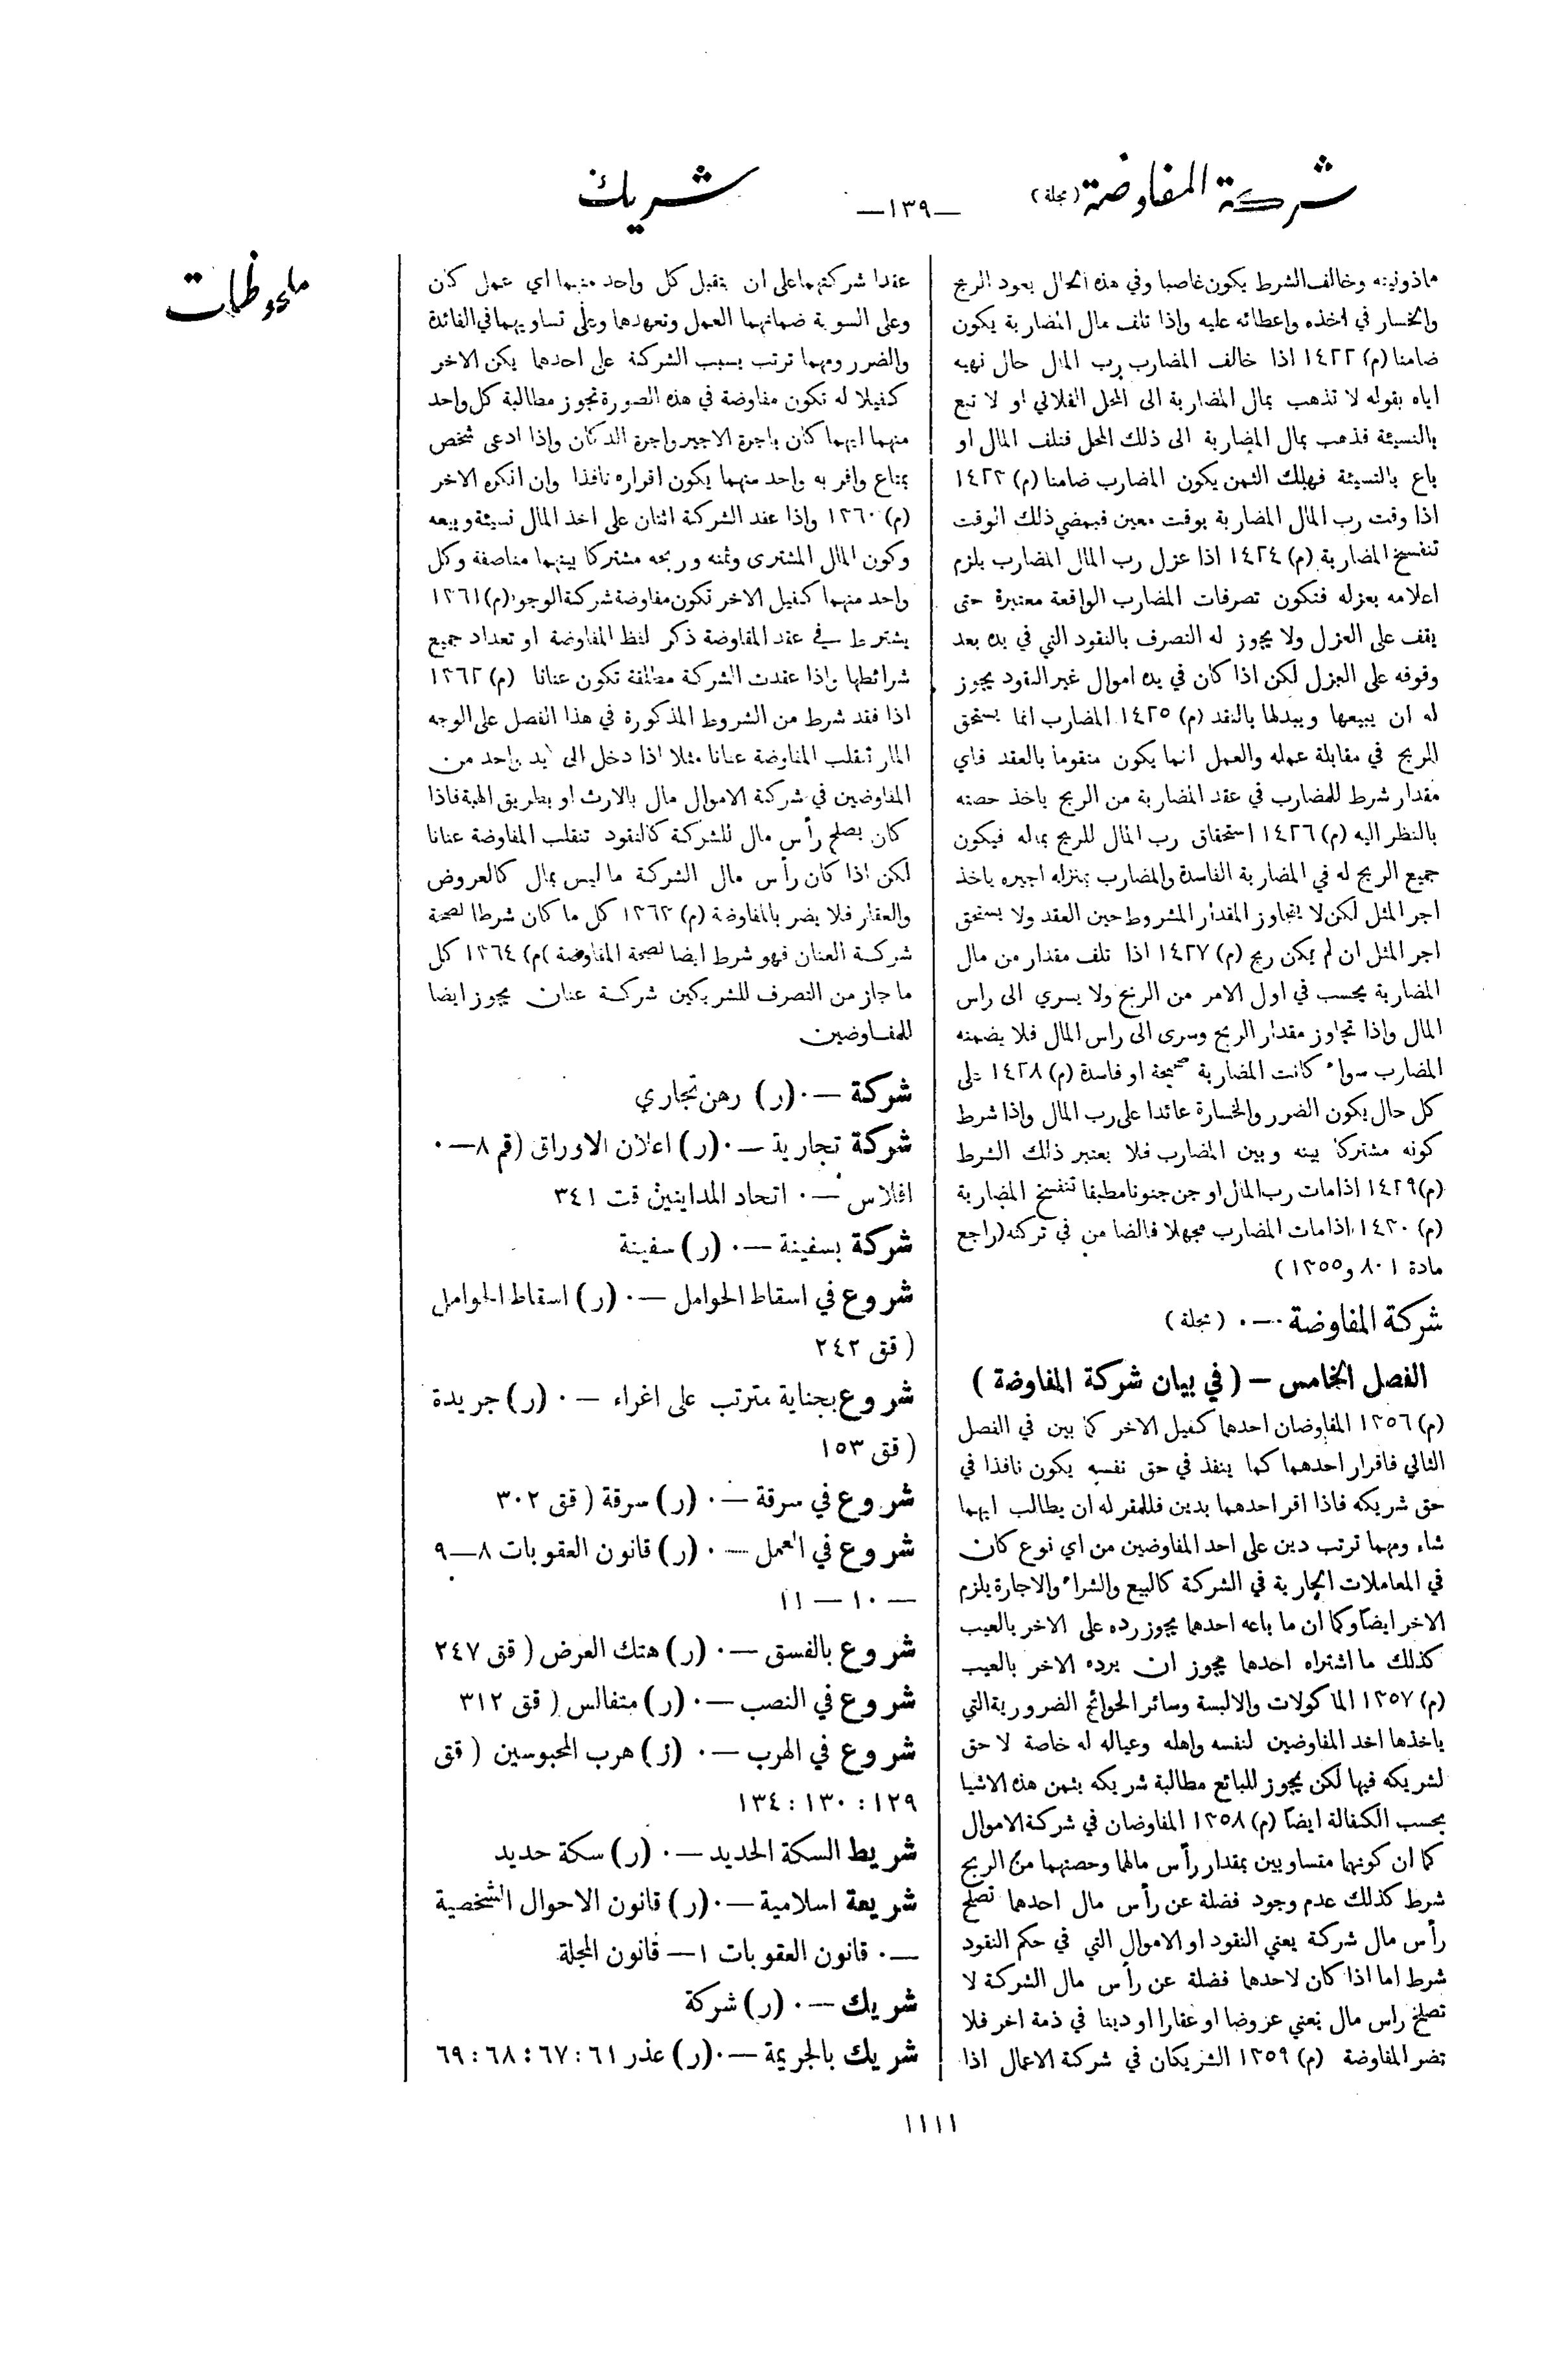 شركة المفاوضة (مجلة)
—١٣٩—
شريك
ملحوظات
ماذونيته وخالف الشرط يكون غاصبا وفي هذه الحال يعود الربح
والخسار في اخذه واعطائه عليه واذا تلف مال المضاربة يكون
ضامنا (م) ١٤٢٢ اذا خالف المضارب رب المال حال نهيه
اياه بقوله لا تذهب بمال المضاربة الى المحل الفلاني او لا تبع
بالنسيئة فذهب بمال المضاربة الى ذلك المحل فتلف المال او
باع بالنسيئة فهلك الثمن يكون المضارب ضامنا (م) ١٤٢٣
اذا وقت رب المال المضاربة بوقت معين فبمضي ذلك الوقت
تنفسخ المضاربة (م) ١٤٢٤ اذا عزل رب المال المضارب يلزم
اعلامه بعزله فتكون تصرفات المضارب الواقعة معتبرة حتى
يقف على العزل ولا يجوز له التصرف بالنقود التي في يده بعد
وقوفه على العزل لكن اذا كان في يده اموال غير النقود يجوز
له ان يبيعها ويبدلها بالنقد (م) ١٤٢٥ المضارب انما يستحق
الربح في مقابلة عمله والعمل انما يكون متقوما بالعقد فاي
مقدار شرط للمضارب في عقد المضاربة من الربح ياخذ حصته
بالنظر اليه (م) ١٤٢٦ استحقاق رب المال للربح بماله فيكون
جميع الربح له في المضاربة الفاسدة والمضارب بمنزله اجيره ياخذ
اجر المثل لكن لا يتجاوز المقدار المشروط حين العقد ولا يستحق
اجر المثل ان لم يكن ربح (م) ١٤٢٧ اذا تلف مقدار من مال
المضاربة يحسب في اول الامر من الربح ولا يسري الى راس
المال واذا تجاوز مقدار الربح وسرى الى راس المال فلا يضمنه
المضارب سواء كانت المضاربة صحيحة او فاسدة (م) ١٤٢٨ على
كل حال يكون الضرر والخسارة عائدا على رب المال واذا شرط
كونه مشتركا بينه وبين المضارب فلا يعتبر ذلك الشرط
(م) ١٤٢٩ اذا مات رب المال او جن جنونا مطبقا تنفسخ المضاربة
(م) ١٤٣٠ اذا مات المضارب مجهلا فالضمان في تركته (راجع
مادة ٨٠١ و ١٣٥٥)
شركة المفاوضة —٠ (مجلة)
الفصل الخامس — (في بيان شركة المفاوضة)
(م) ١٣٥٦ المفاوضان احدهما كفيل الاخر كما بين في الفصل
الثاني فاقرار احدهما كما ينفذ في حق نفسه يكون نافذا في
حق شريكه فاذا اقر احدهما بدين فللمقر له ان يطالب ايهما
شاء ومهما ترتب دين على احد المفاوضين من اي نوع كان
في المعاملات الجارية في الشركة كالبيع والشراء والاجارة يلزم
الاخر ايضاً وكما ان ما باعه احدهما يجوز رده على الاخر بالعيب
كذلك ما اشتراه احدهما يجوز ان يرده الاخر بالعيب
(م) ١٣٥٧ الماكولات والالبسة وسائر الحوائج الضرورية التي
ياخذها احد المفاوضين لنفسه واهله وعياله له خاصة لا حق
لشريكه فيها لكن يجوز للبائع مطالبة شريكه بثمن هذه الاشيا
بحسب الكفالة ايضاً (م) ١٣٥٨ المفاوضان في شركة الاموال
كما ان كونهما متساويين بمقدار رأس مالهما وحصتهما من الربح
شرط كذلك عدم وجود فضلة عن رأس مال احدهما تصلح
رأس مال شركة يعني النقود او الاموال التي في حكم النقود
شرط اما اذا كان لاحدهما فضلة عن رأس مال الشركة لا
تصلح راس مال يعني عروضا او عقارا او دينا في ذمة اخر فلا
تضر المفاوضة (م) ١٣٥٩ الشريكان في شركة الاعمال اذا
عقدا شركتهما على ان يتقبل كل واحد منهما اي عمل كان
وعلى السوية ضمانهما العمل وتعهدهما وعلى تساويهما في الفائدة
والضرر ومهما ترتب بسبب الشركة على احدهما يكن الاخر
كفيلا له تكون مفاوضة في هذه الصورة تجوز مطالبة كل واحد
منهما ايهما كان باجرة الاجير واجرة الدكان واذا ادعى شخص
بمتاع واقر به واحد منهما يكون اقراره نافذا وان انكره الاخر
(م) ١٣٦٠ واذا عقد الشركة اثنان على اخذ المال نسيئة وبيعه
وكون المال المشترى وثمنه وربحه مشتركا بينهما مناصفة وكل
واحد منهما كفيل الاخر تكون مفاوضة شركة الوجوه (م) ١٣٦١
يشترط في عقد المفاوضة ذكر لفظ المفاوضة او تعداد جميع
شرائطها واذا عقدت الشركة مطلقة تكون عنانا (م) ١٣٦٢
اذا فقد شرط من الشروط المذكورة في هذا الفصل على الوجه
المار تنقلب المفاوضة عنانا مثلا اذا دخل الى يد واحد من
المفاوضين في شركة الاموال مال بالارث او بطريق الهبة فاذا
كان يصلح رأس مال للشركة كالنقود تنقلب المفاوضة عنانا
لكن اذا كان رأس مال الشركة ما ليس بمال كالعروض
والعقار فلا يضر بالمفاوضة (م) ١٣٦٣ كل ما كان شرطا لصحة
شركة العنان فهو شرط ايضا لصحة المفاوضة (م) ١٣٦٤ كل
ما جاز من التصرف للشريكين شركة عنان يجوز ايضا
للمفاوضين
شركة —٠ (ر) رهن تجاري
شركة تجارية —٠ (ر) اعلان الاوراق (قم ٨—٠
افلاس —٠ اتحاد المداينين قت ٣٤١
شركة بسفينة —٠ (ر) سفينة
شروع في اسقاط الحوامل —٠ (ر) اسقاط الحوامل
(قق ٢٤٢
شروع بجناية مترتب على اغراء —٠ (ر) جريدة
(قق ١٥٣
شروع في سرقة —٠ (ر) سرقة (قق ٣٠٢
شروع في العمل —٠ (ر) قانون العقوبات ٨—٩
— ١٠ — ١١
شروع بالفسق —٠ (ر) هتك العرض (قق ٢٤٧
شروع في النصب —٠ (ر) متفالس (قق ٣١٢
شروع في الهرب —٠ (ر) هرب المحبوسين (قق
١٢٩ : ١٣٠ : ١٣٤
شريط السكة الحديد —٠ (ر) سكة حديد
شريعة اسلامية —٠ (ر) قانون الاحوال الشخصية
—٠ قانون العقوبات ١ — قانون المجلة
شريك —٠ (ر) شركة
شريك بالجريمة —٠ (ر) عذر ٦١ : ٦٧ : ٦٨ : ٦٩
١١١١